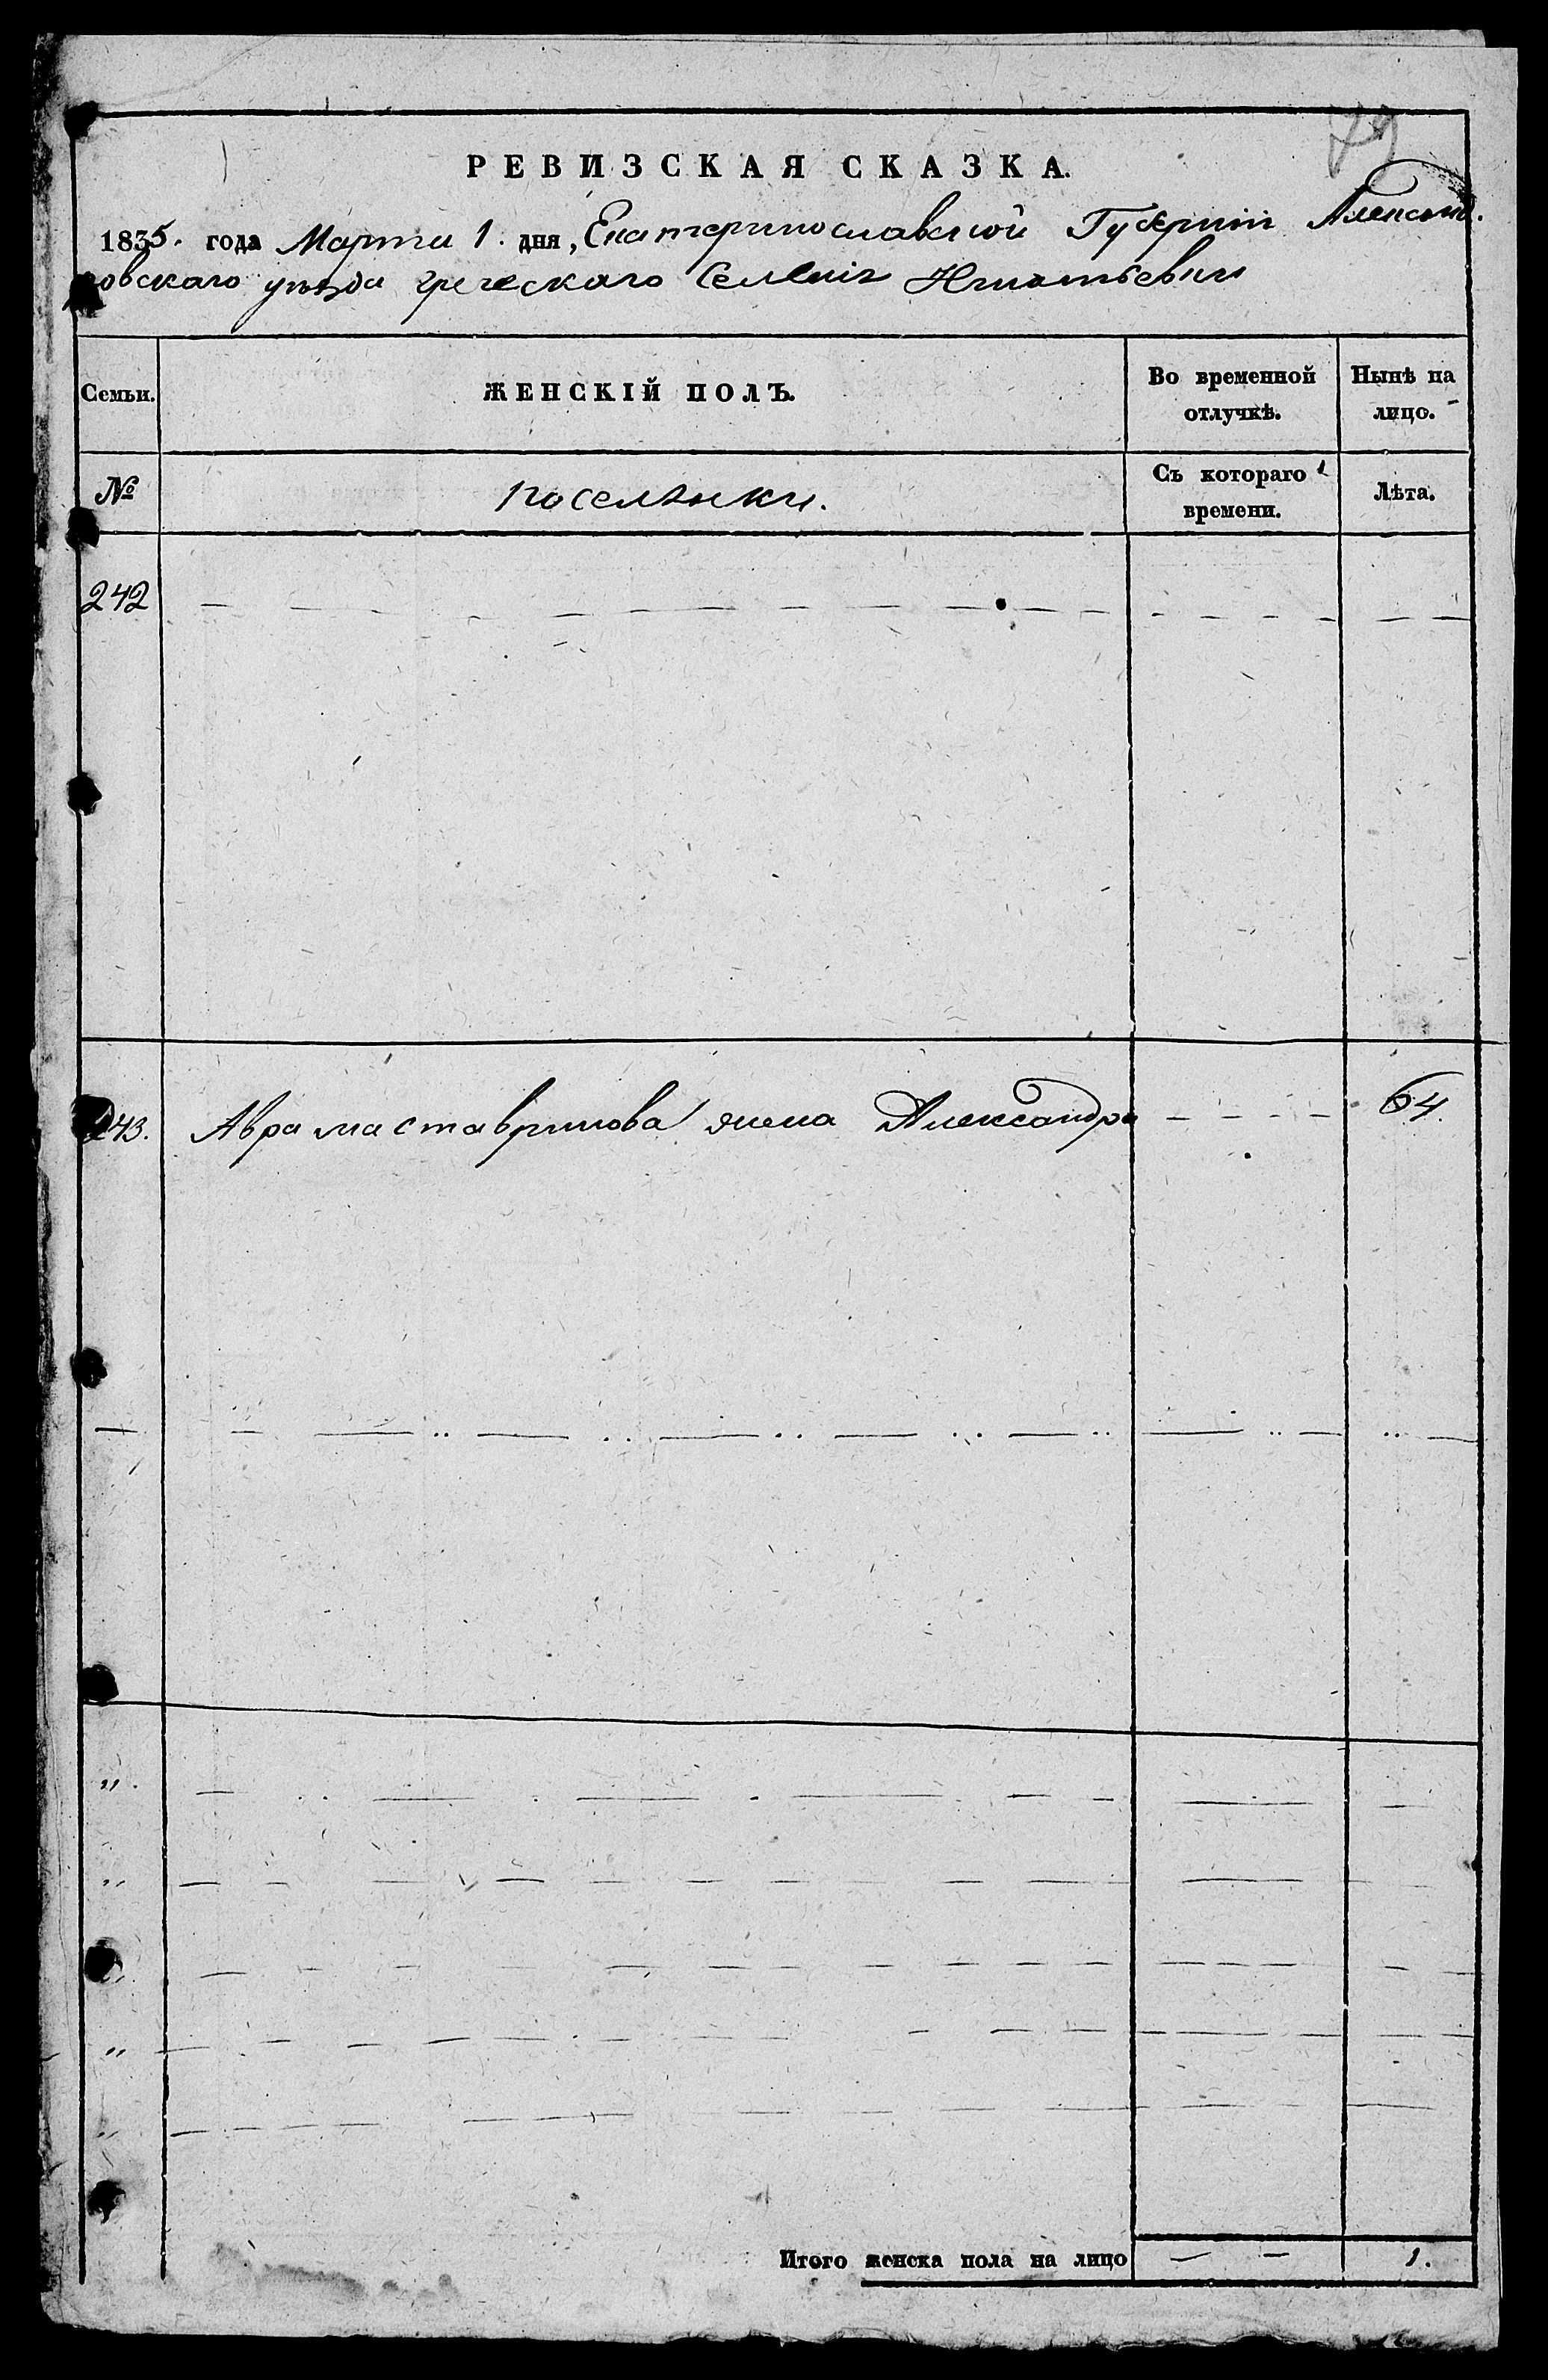 79
РЕВИЗСКАЯ СКАЗКА.
1835. года Марта 1. дня, Екатеринославской Губерніи Александ.
ровскаго уѣзда греческаго Селенія Игнатьевки
Семьи. ЖЕНСКІЙ ПОЛЪ. Во временной отлучкѣ. Нынѣ на лицо.
№ поселянки. Съ котораго времени. Лѣта.
242
243. Аврама ставринова жена Александра 64.
Итого женска пола на лицо 1.